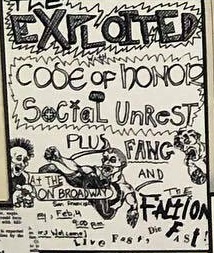 THE
EXPLOITED
WITH
CODE OF HONOR
SOCIAL UNREST
PLUS FANG
AND
AT THE
ON BROADWAY
San Francisco
Feb. 4
9:00 pm
Welcome!
The
FACTION
Live Fast, Die Fast!